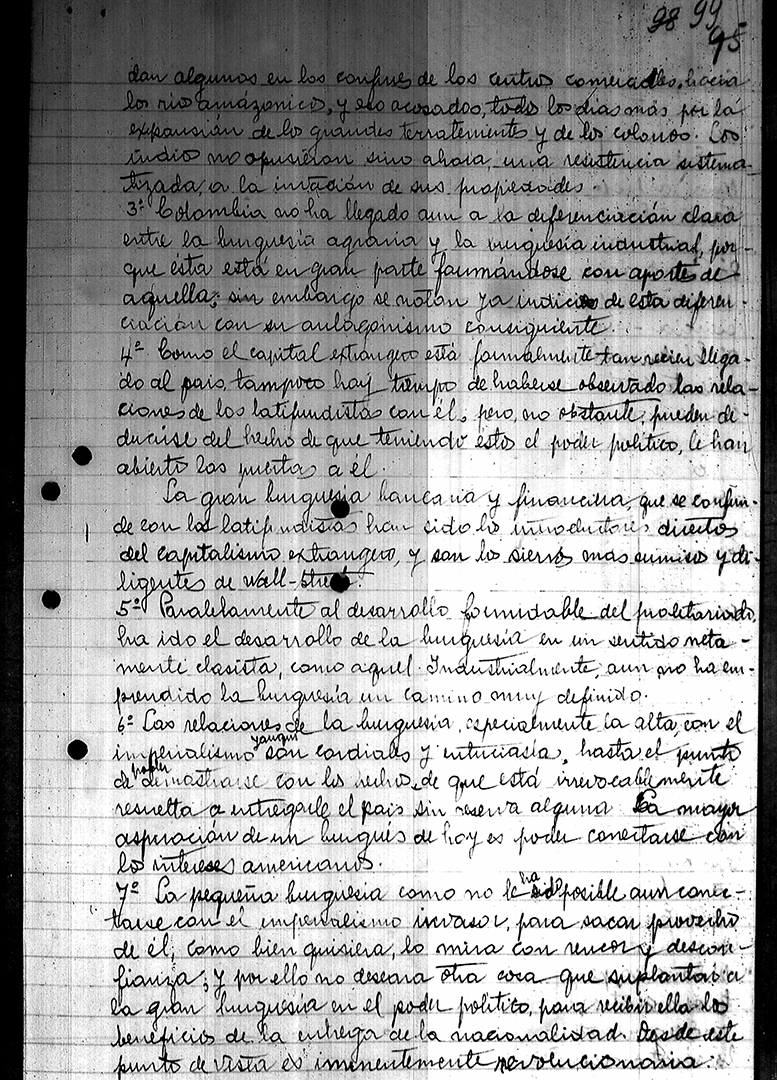 98 99
95
dan algunos en los confines de los centros comerciales, hacia
los rios amázonicos, y eso acosados, todos los dias mas por la
expansión de los grandes terratenientes y de los colonos. Los
indios no opusieron sino ahora, una resistencia sistema-
tizada, a la invación de sus propiedades.
3º Colombia no ha llegado aun a la diferenciación clara
entre la burguesia agraria y la burguesía industrial, por-
que ésta está en gran parte formándose con aportes de
aquella; sin embargo se notan ya indicios de esta diferen-
ciación con su antagonismo consiguiente.
4º Como el capital extrangero está formalmente tan recien llega-
do al pais, tampoco hay tiempo de haberse observado las rela-
ciones de los latifundistas con él, pero, no obstante, pueden de-
ducirse del hecho de que teniendo estos el poder politico, le han
abierto las puertas a él.
La gran burguesia bancaria y financiera, que se confun-
de con los latifundistas han sido los introductores directos
del capitalismo extrangero, y son los siervos mas sumisos y di-
ligentes de Wall-Street.
5º Paralelamente al desarrollo formidable del proletariado,
ha ido el desarrollo de la burguesia en un sentido neta-
mente clasista, como aquel. Industrialmente, aun no ha em-
prendido la burguesia un camino muy definido.
6º Las relaciones de la burguesia, especialmente la alta, con el
imperialismo yanqui son cordiales y entuciasta, hasta el punto
de poder demostrarse con los hechos, de que está irrevocablemente
resuelta a entregarle el pais sin reserva alguna. La mayor
aspiración de un burgués de hoy es poder conectarse con
los intereses americanos.
7º La pequeña burguesia como no le ha sido posible aun conec-
tarse con el imperialismo invasor, para sacar provecho
de él, como bien quisiera, lo mira con rencor y descon-
fianza; y por ello no deseara otra cosa que suplantar a
la gran burguesia en el poder politico, para recibir ella los
beneficios de la entrega de la nacionalidad. Desde este
punto de vista es imenentemente revolucionaria.